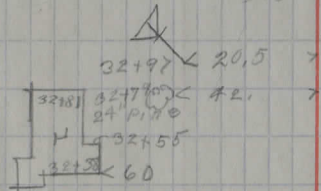 32+97 < 20,5
32+81 32+78 < 42,
24" pine
32+55
32+50 < 60